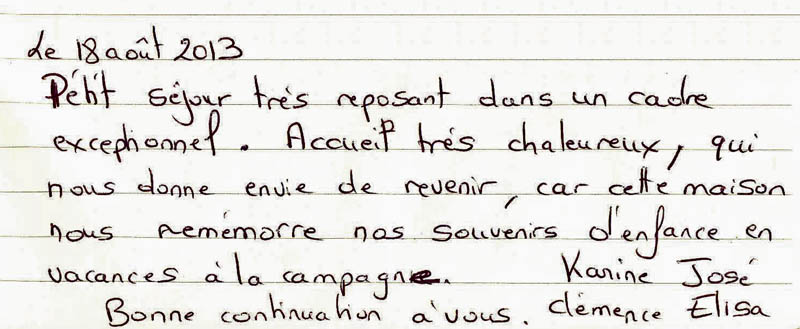 Le 18 août 2013
Pétit séjour très reposant dans un cadre
exceptionnel. Accueil très chaleureux, qui
nous donne envie de revenir, car cette maison
nous remémorre nos souvenirs d'enfance en
vacances à la campagne. Karine José
Bonne continuation à vous. Clémence Elisa